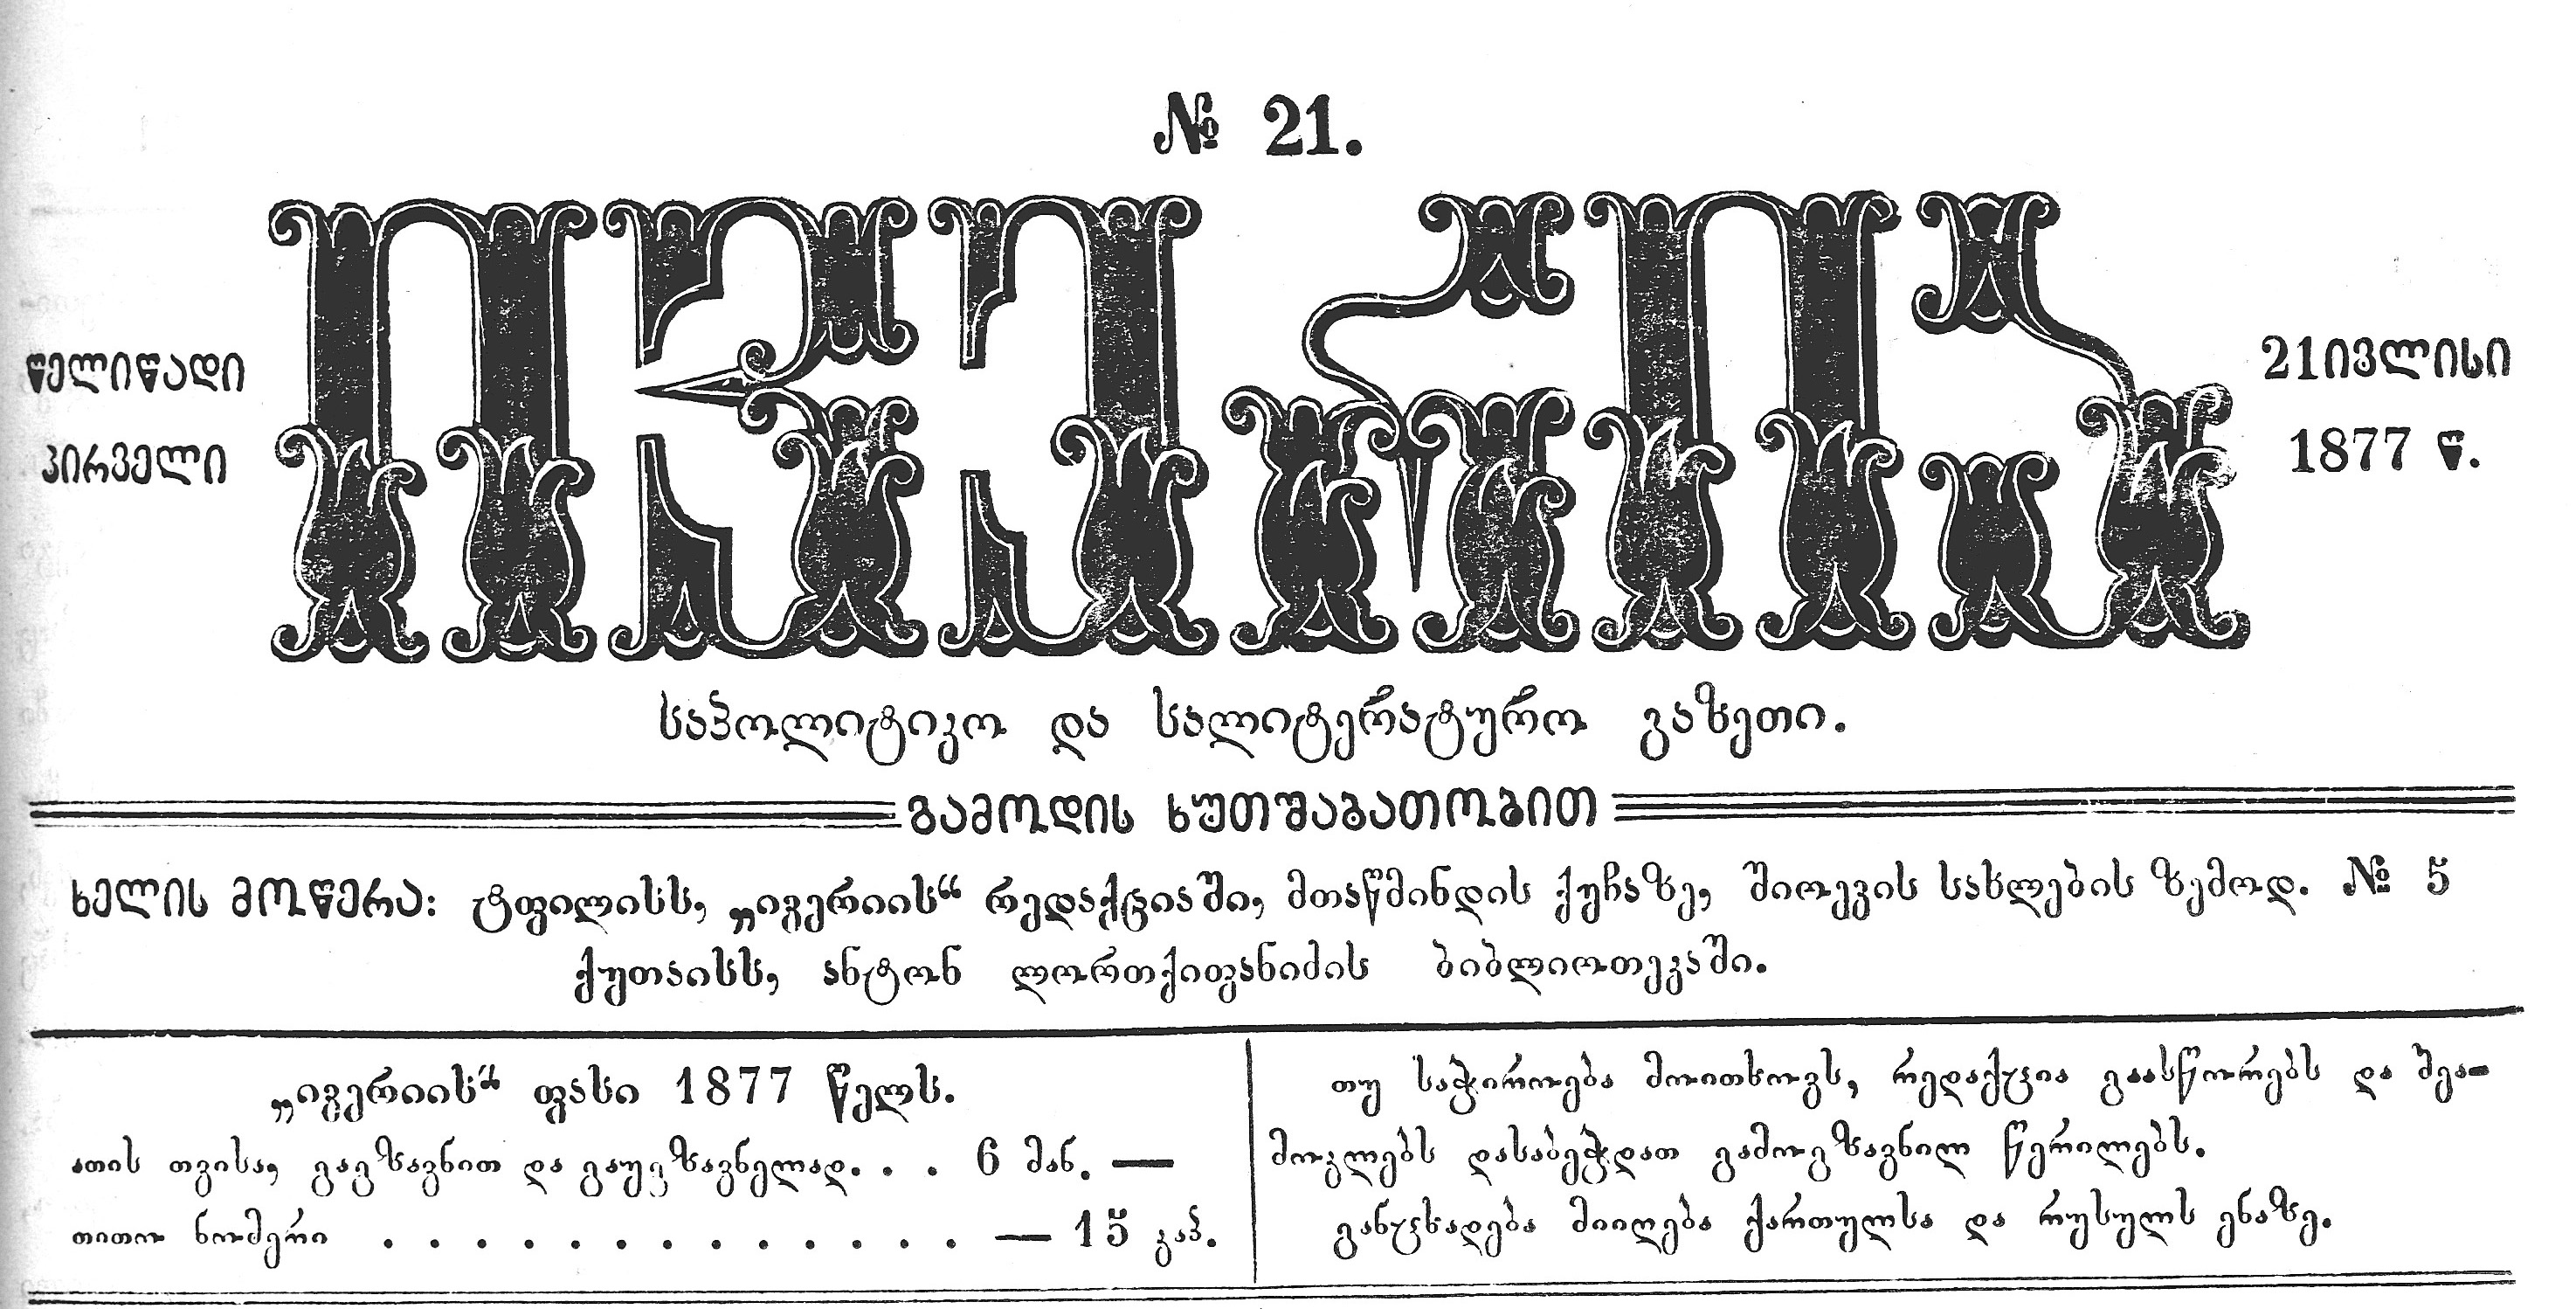 № 21.
წელიწადი
პირველი
ივერია
21 ივლისი
1877 წ.
საპოლიტიკო და სალიტერატურო გაზეთი.
გამოდის ხუთშაბათობით
ხელის მოწერა: ტფილისს, „ივერიის“ რედაქციაში, მთაწმინდის ქუჩაზე, შიოევის სახლების ზემოდ. № 5
ქუთაისს, ანტონ ლორთქიფანიძის ბიბლიოთეკაში.
„ივერიის“ ფასი 1877 წელს.
ათის თვისა, გაგზავნით და გაუგზავნელად. . . 6 მან. —
თითო ნომერი . . . . . . . . . . . . . — 15 კაპ.
თუ საჭიროება მოითხოვს, რედაქცია გაასწორებს და შეა-
მოკლებს დასაბეჭდათ გამოგზავნილ წერილებს.
განცხადება მიიღება ქართულსა და რუსულს ენაზე.